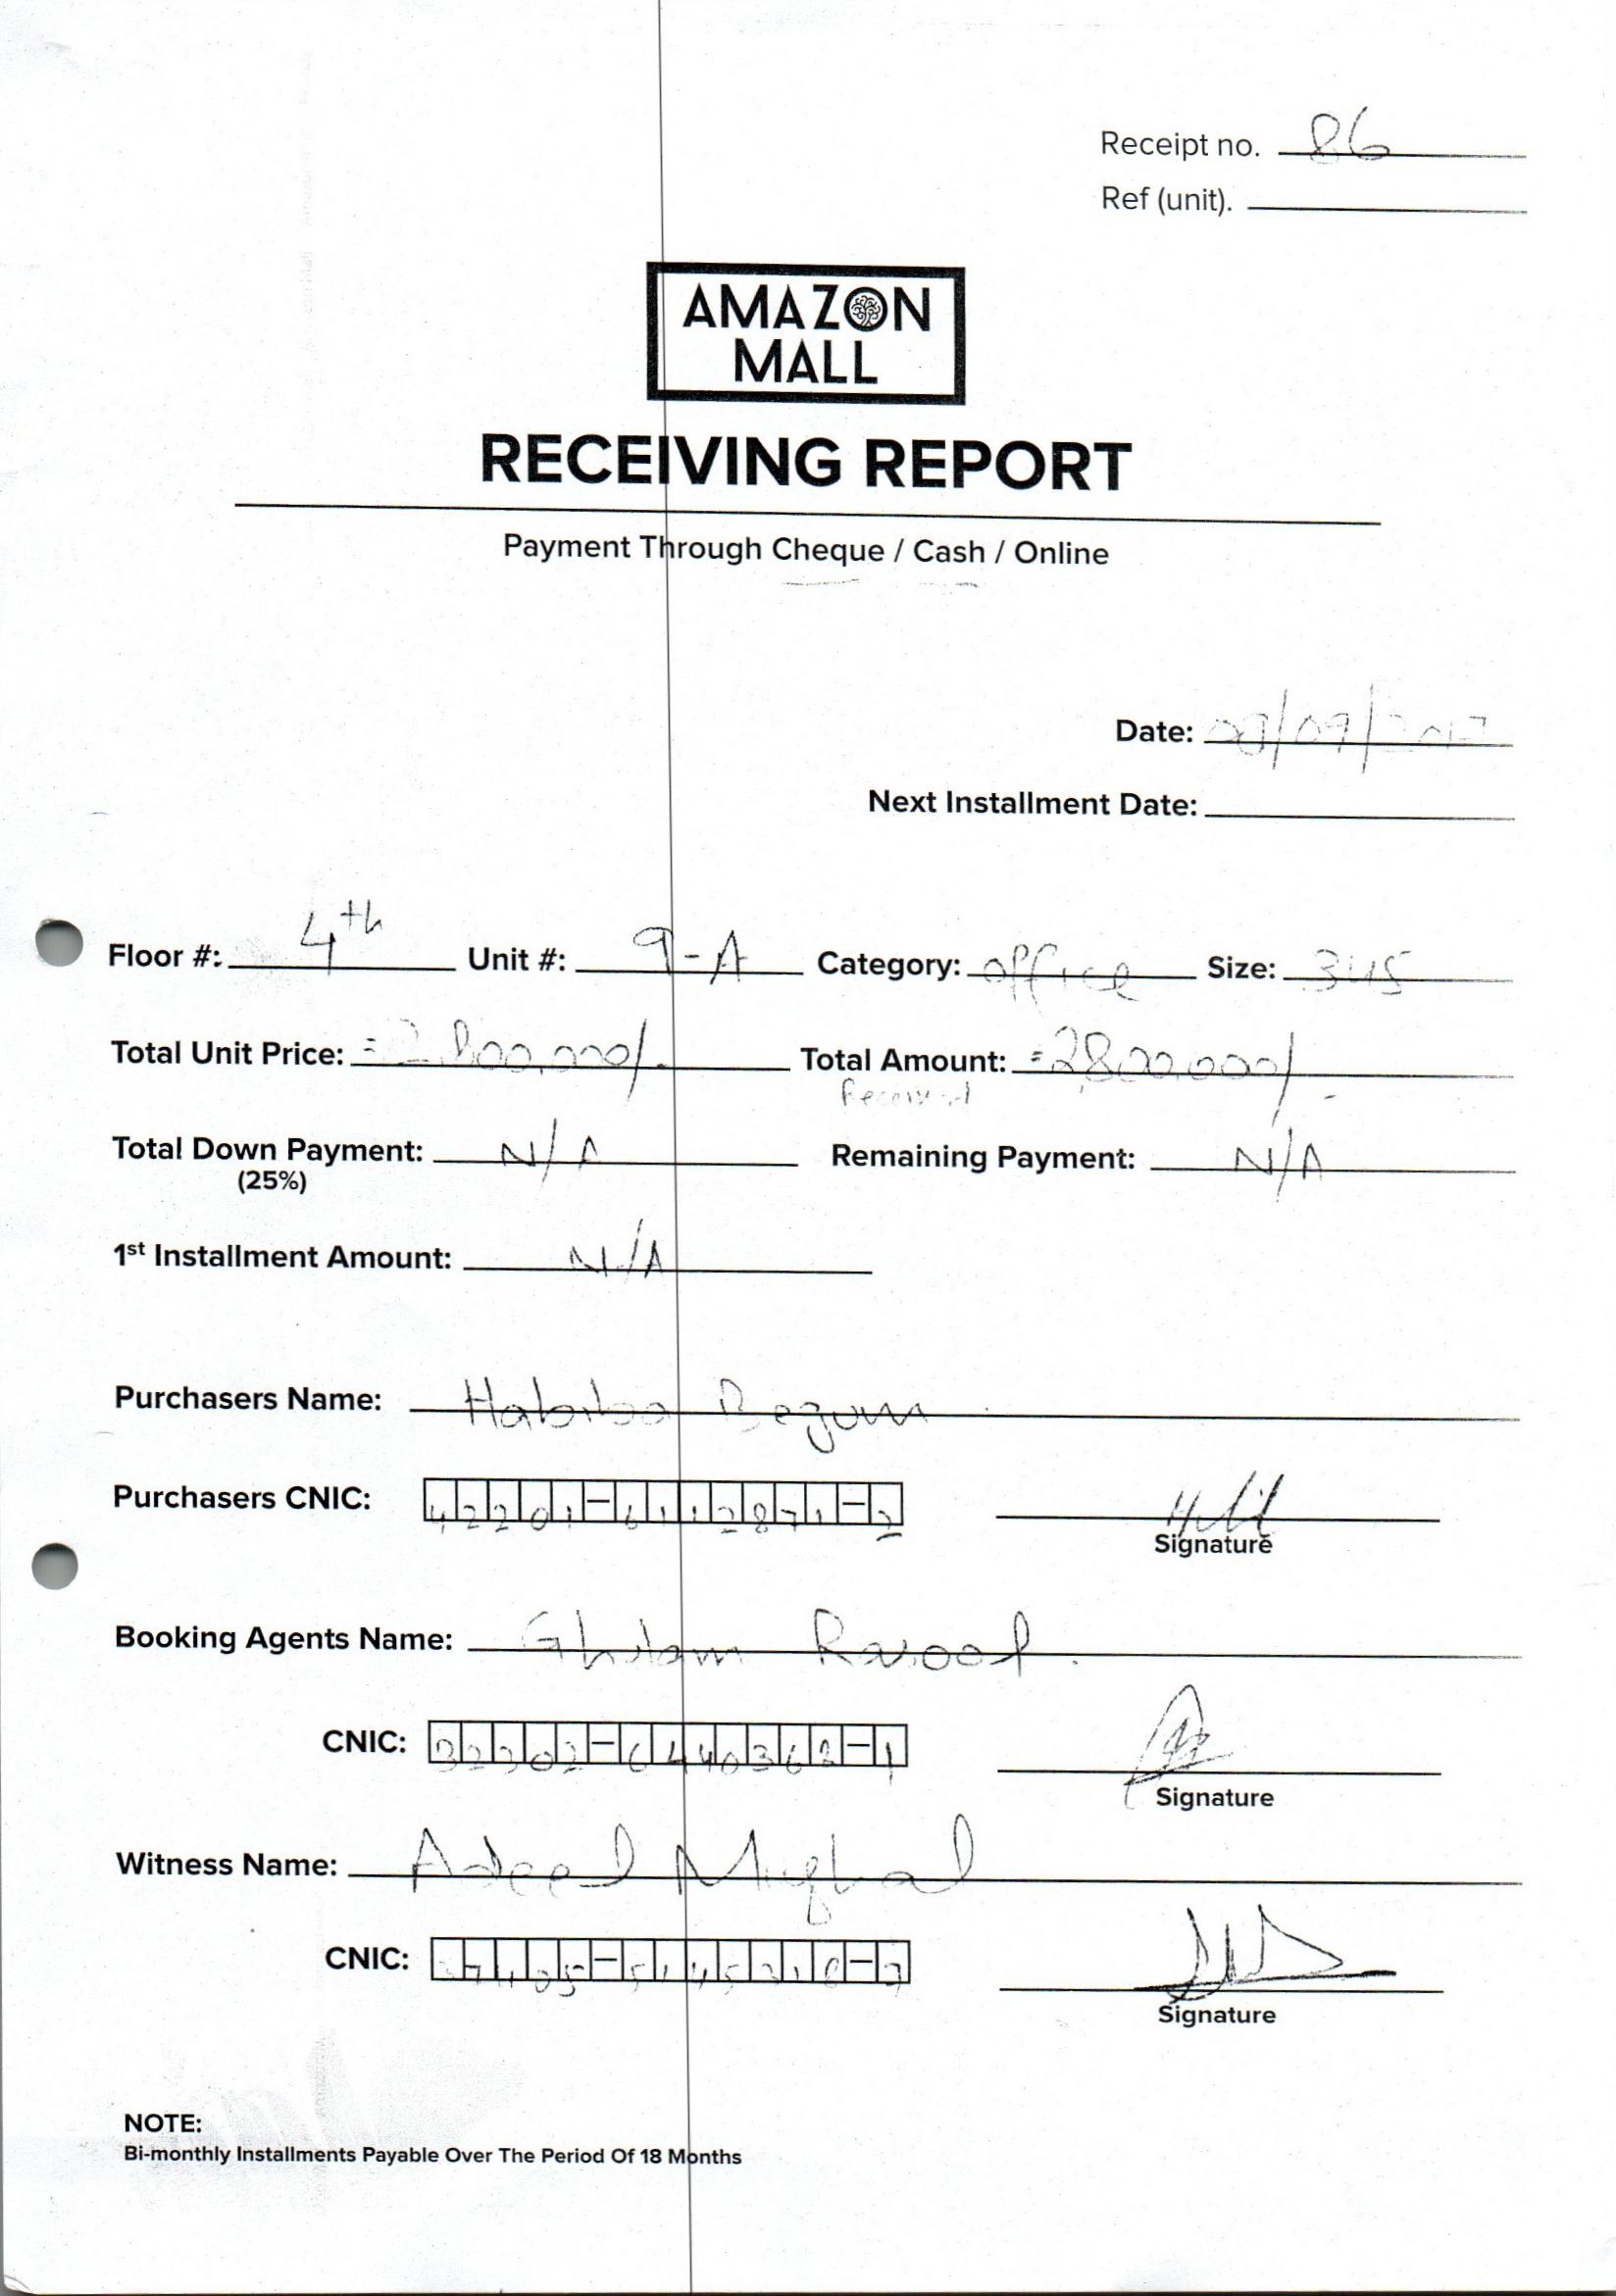 Receipt no. 86
Ref (unit).
AMAZON
MALL
RECEIVING REPORT
Payment Through Cheque / Cash / Online
Date: /09/2017
Next Installment Date:
Floor #: 4th Unit #: 9-A Category: office Size: 345
Total Unit Price: =2,800,000/- Total Amount: =2800,000/-
Received
Total Down Payment: N/A Remaining Payment: N/A
(25%)
1st Installment Amount: N/A
Purchasers Name: Habiba Begum
Purchasers CNIC: 42201-6112871-2
Signature
Booking Agents Name: Ghulam Rasool
CNIC: 32302-6440362-1
Signature
Witness Name: Adeel Mughal
CNIC:
Signature
NOTE:
Bi-monthly Installments Payable Over The Period Of 18 Months